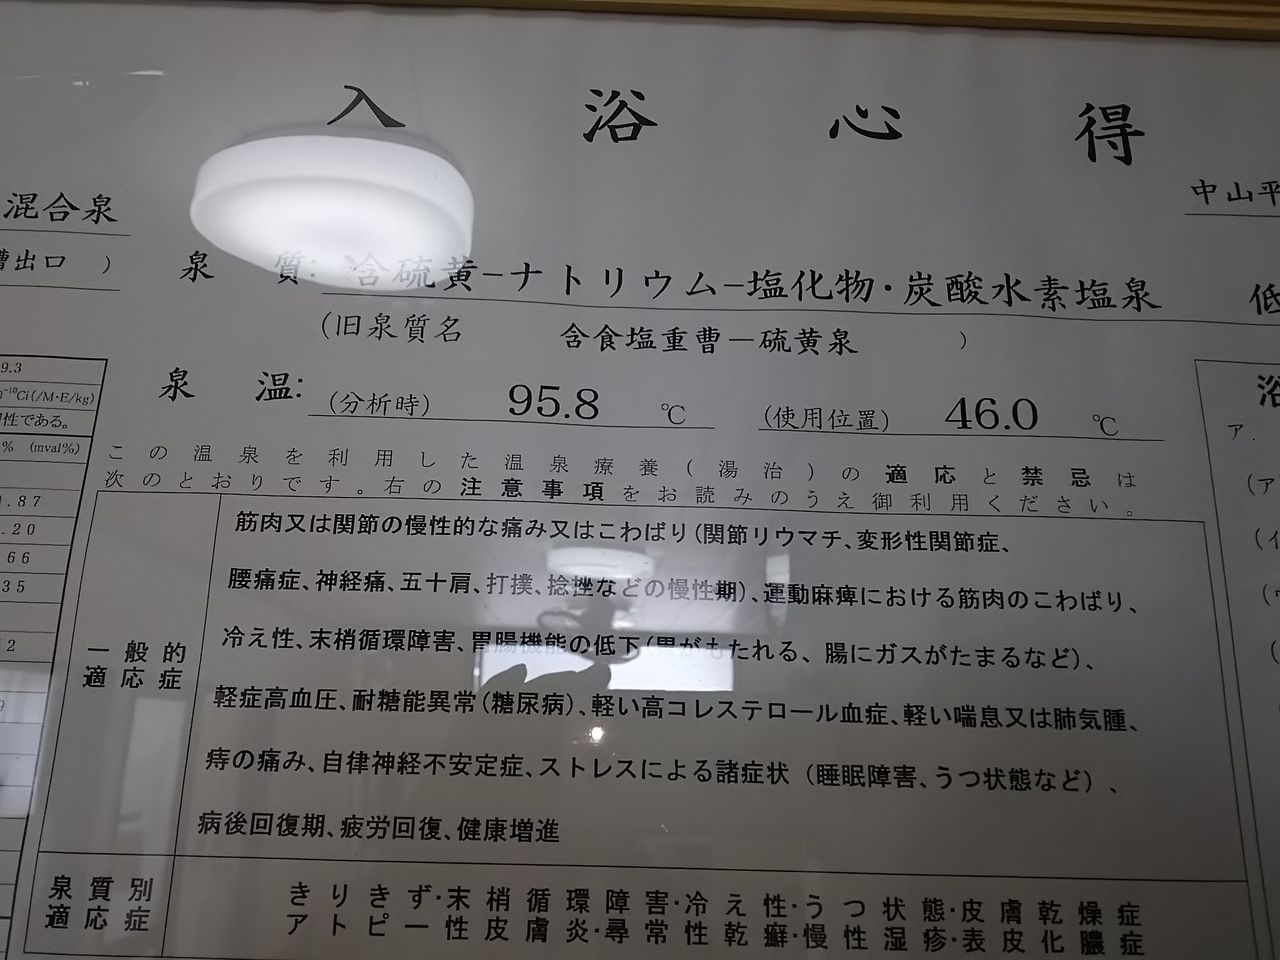 入浴心得
混合泉
中山平
槽出口 )
泉質: 含硫黄-ナトリウム-塩化物・炭酸水素塩泉
低
(旧泉質名 含食塩重曹-硫黄泉 )
泉温: (分析時) 95.8 ℃ (使用位置) 46.0 ℃
浴
9.3
Ci(/M・E/kg)
性である。
% (mval%)
ア.
この温泉を利用した温泉療養(湯治)の適応と禁忌は
次のとおりです。右の注意事項をお読みのうえ御利用ください。
.87
.20
66
35
2
(ア
一般的
適応症
筋肉又は関節の慢性的な痛み又はこわばり(関節リウマチ、変形性関節症、
腰痛症、神経痛、五十肩、打撲、捻挫などの慢性期)、運動麻痺における筋肉のこわばり、
冷え性、末梢循環障害、胃腸機能の低下(胃がもたれる、腸にガスがたまるなど)、
軽症高血圧、耐糖能異常(糖尿病)、軽い高コレステロール血症、軽い喘息又は肺気腫、
痔の痛み、自律神経不安定症、ストレスによる諸症状 (睡眠障害、うつ状態など)、
病後回復期、疲労回復、健康増進
泉質別
適応症
きりきず・末梢循環障害・冷え性・うつ状態・皮膚乾燥症
アトピー性皮膚炎・尋常性乾癬・慢性湿疹・表皮化膿症